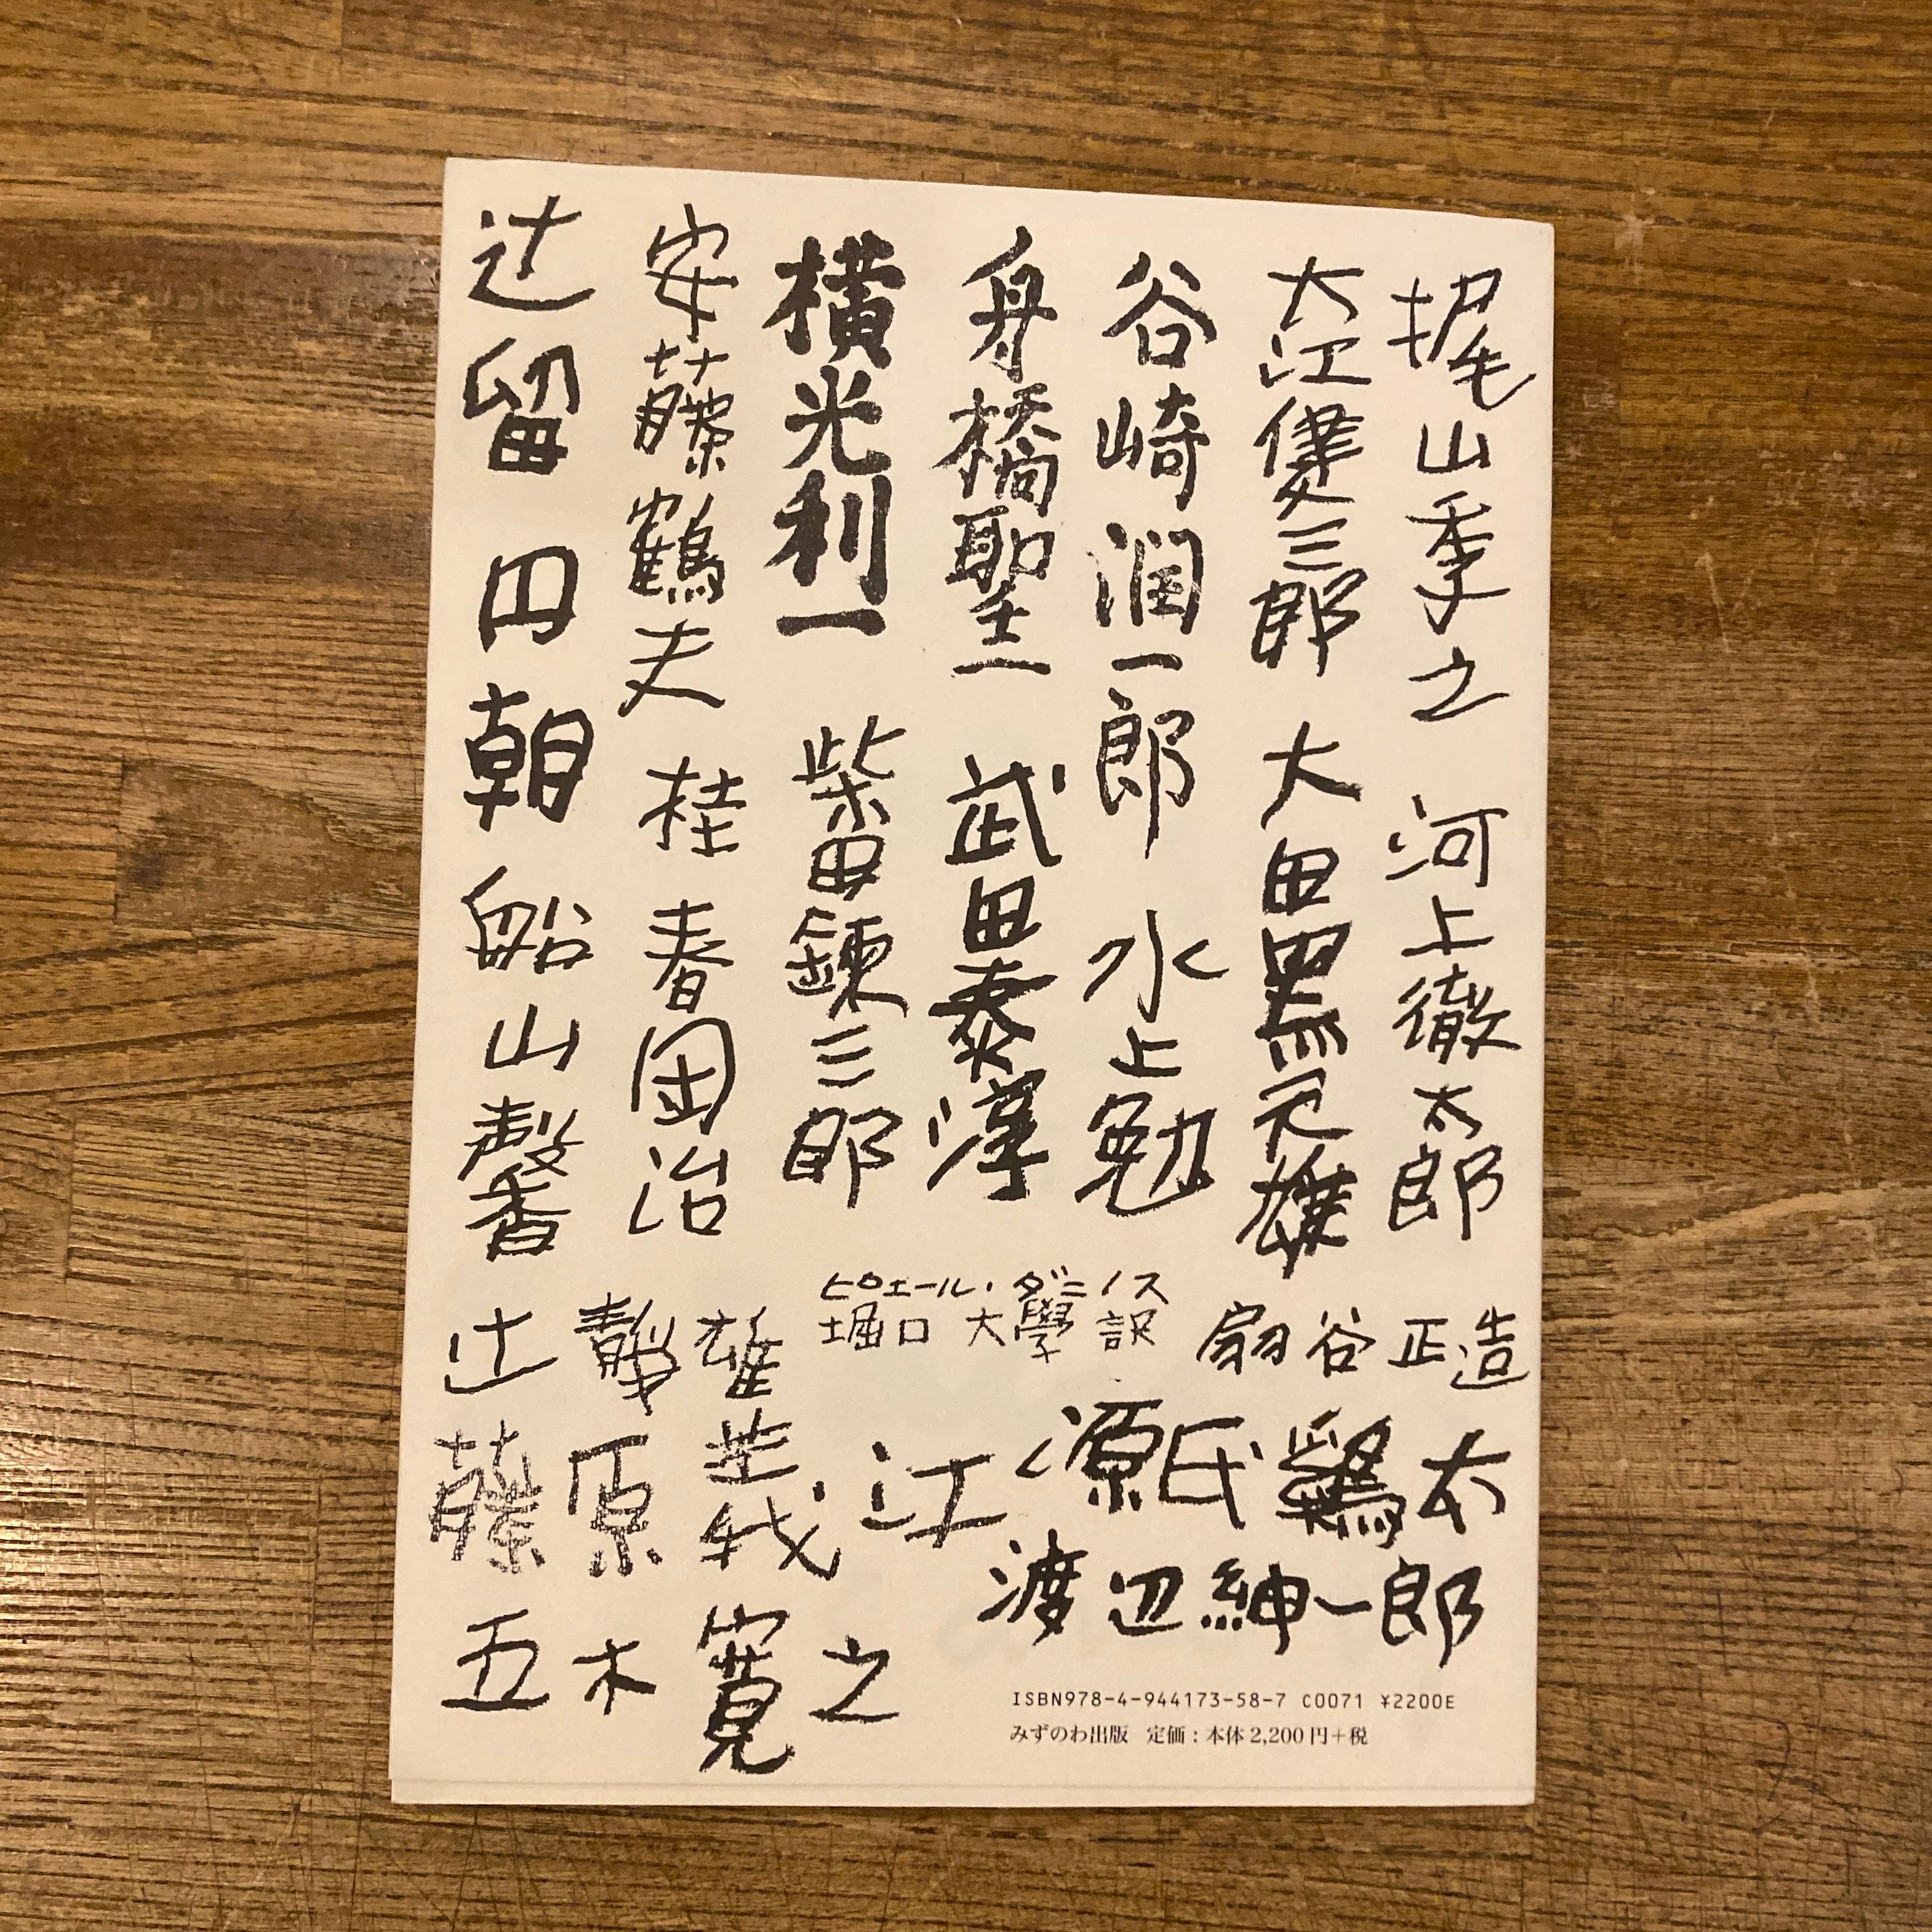 梶山季之 河上徹太郎
大江健三郎 大田黒元雄
谷崎潤一郎 水上勉
舟橋聖一 武田泰淳
横光利一 柴田錬三郎
安藤鶴夫 桂春団治
辻留 円朝 船山馨
ピエール・ダニノス
堀口大學訳
扇谷正造
辻静雄
源氏鶏太
藤原
渡辺紳一郎
五木寛之
ISBN978-4-944173-58-7 C0071 ¥2200E
みずのわ出版 定価：本体2,200円＋税